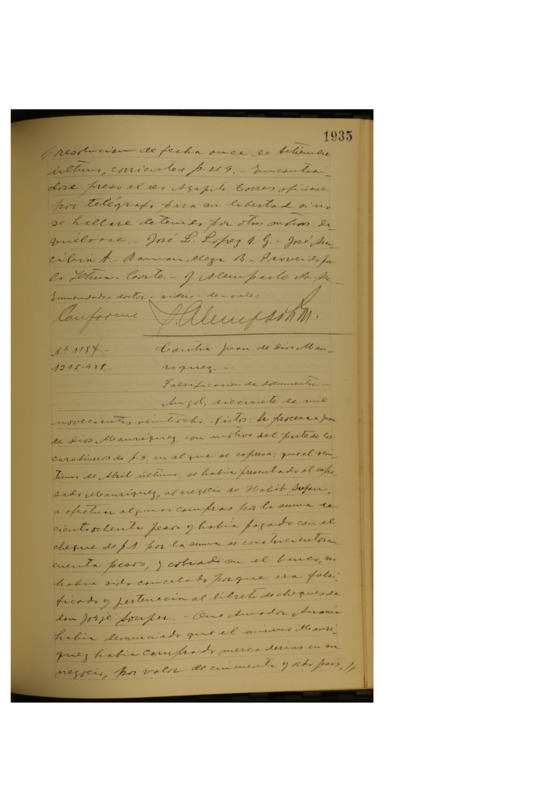 1935
resolucion de fecha once de Setiembre
último, corriente a f. 219. - Encontrán-
dose preso el reo Agapito Torres ofíciese
por telégrafo para su libertad si no
se hallare detenido por otro motivo. De-
vuélvase. - José L. Lopez A. G. - José
A. - Ramon Meza B. - Proveido por
la Iltma. Corte. -
Enmendados - vale
Conforme
Nº 1184. -
Contra Juan de Dios Mau-
riquez. -
Falsificacion de documento. -
Angol, diecisiete de mil
novecientos veintiocho. Vistos: Se procesa a Juan
de Dios Mauriquez, con motivo del parte de los
carabineros de f. 3, en el que se espresa: que el
de Abril último, se habia presentado el espre-
sado Mauriquez, al negocio de Habib
a efectuar algunas compras por la suma de
ciento ochenta pesos y habia pagado con el
cheque de f. 1 por la suma de cuatrocientos cin-
cuenta pesos, y cobrado en el banco, no
habia sido cancelado porque era falsi-
ficado y pertenecia al libreto de cheques de
don Jorje - Que Amador
habia denunciado que el mismo Mauri-
quez habia comprado mercaderias en su
negocio, por valor de cincuenta y ocho pesos, //